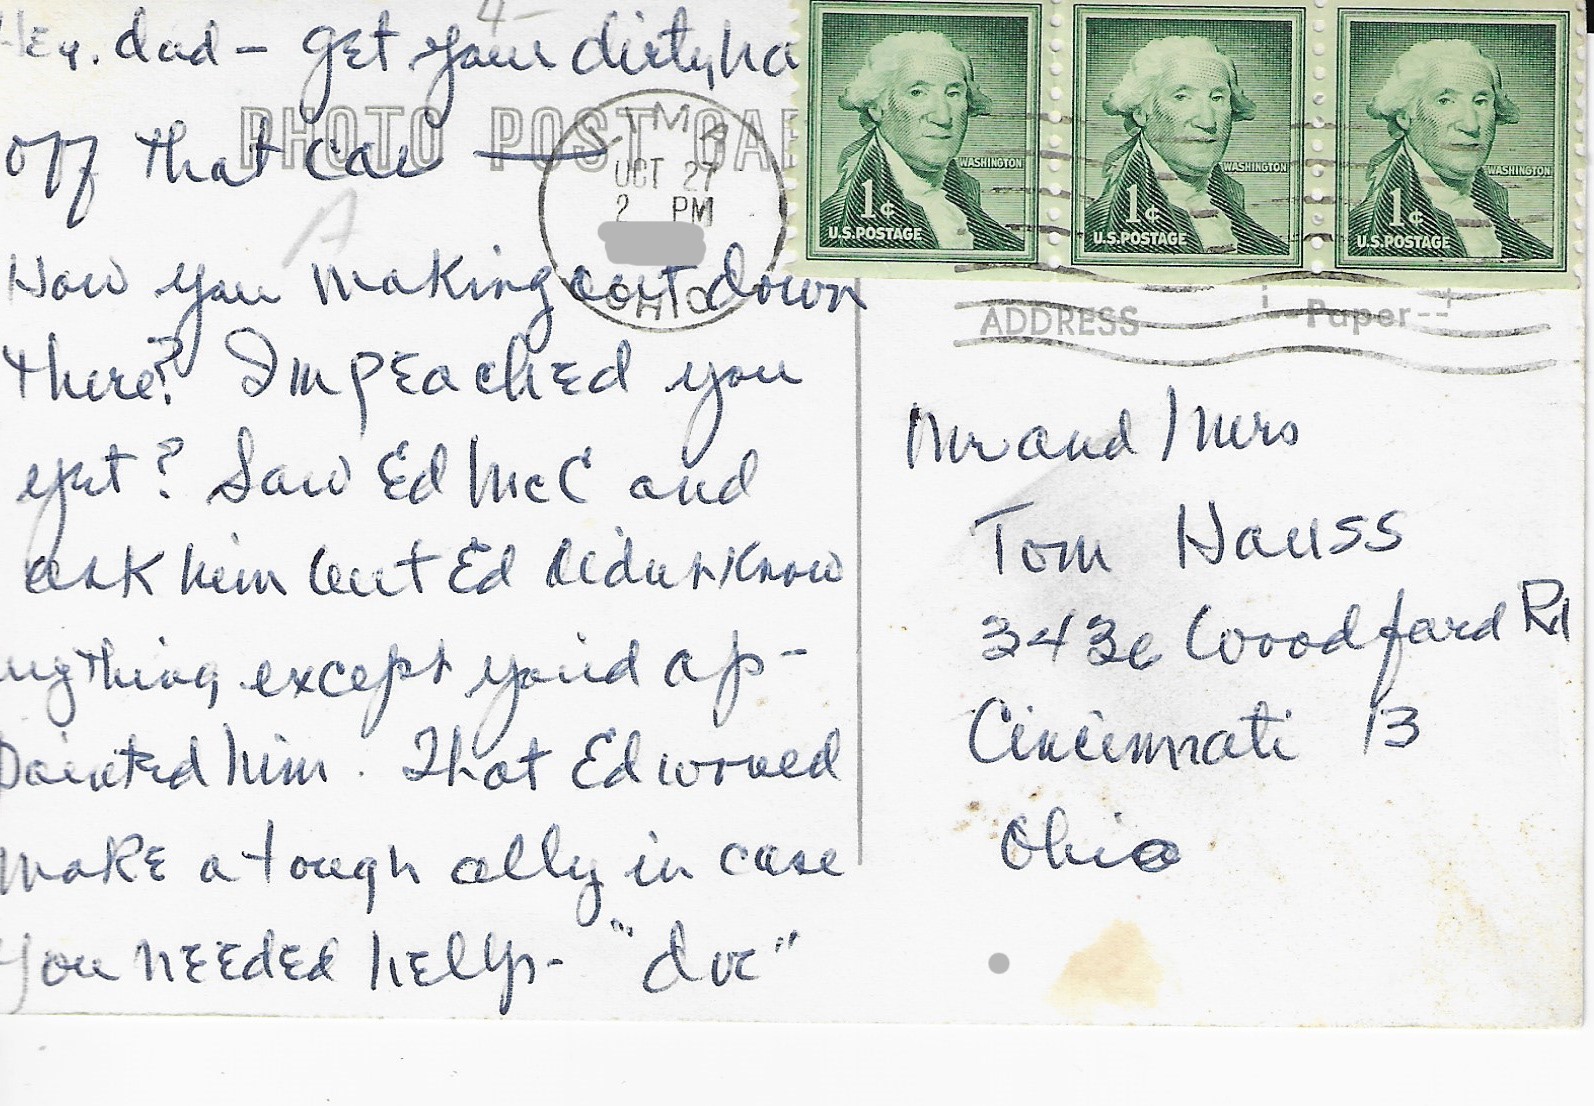 4-
Hey. dad - get your dirty ha
off that car —
PHOTO POST CA
A
LIMA
OCT 27
2 PM
OHIO
WASHINGTON
1¢
U.S. POSTAGE
WASHINGTON
1¢
U.S. POSTAGE
WASHINGTON
1¢
U.S. POSTAGE
How you making out down
there? Impeached you
yet? Saw Ed McC and
ask him but Ed didn't know
anything except you'd ap-
pointed him. That Ed would
make a tough ally in case
you needed help- "doc"
ADDRESS
Paper
Mr and Mrs
Tom Hauss
3436 Woodford Rd
Cincinnati 13
Ohio